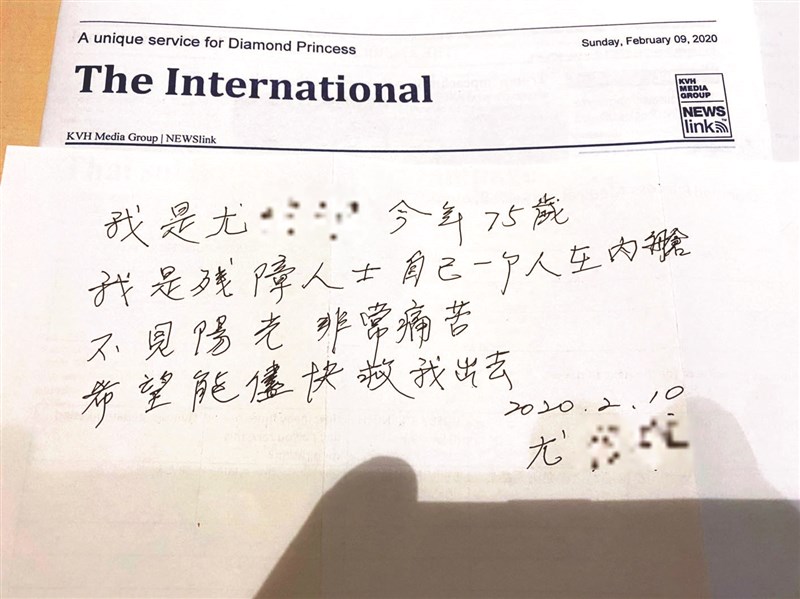 A unique service for Diamond Princess
Sunday, February 09, 2020
The International
KVH
MEDIA
GROUP
NEWS
link
KVH Media Group | NEWSlink
我是尤 今年75歲
我是残障人士自己一个人在內艙
不見陽光非常痛苦
希望能儘快救我出去
2020.2.10
尤